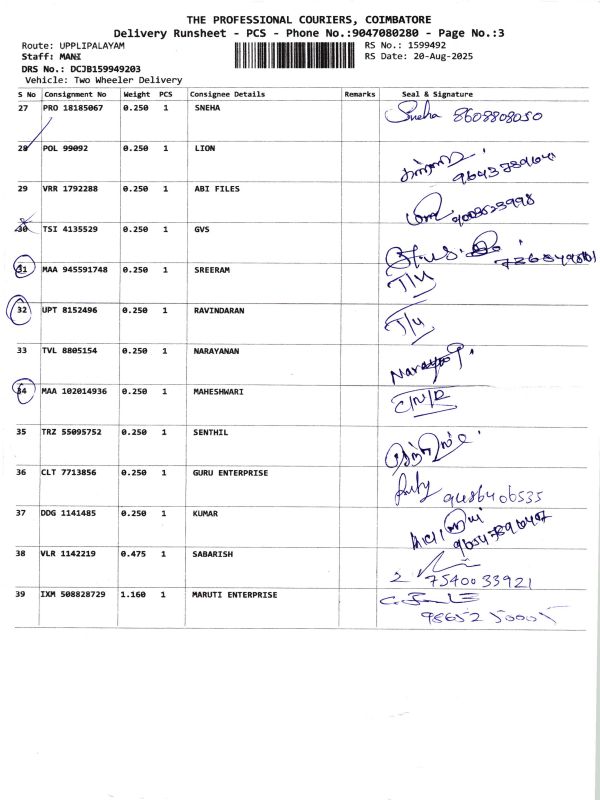 THE PROFESSIONAL COURIERS, COIMBATORE
Delivery Runsheet - PCS - Phone No.:9047080280 - Page No.:3
Route: UPPLIPALAYAM RS No.: 1599492
Staff: MANI RS Date: 20-Aug-2025
DRS No.: DCJB159949203
Vehicle: Two Wheeler Delivery
S No Consignment No Weight PCS Consignee Details Remarks Seal & Signature
27 PRO 18185067 0.250 1 SNEHA Sneha 8608808050
28 POL 99092 0.250 1 LION
29 VRR 1792288 0.250 1 ABI FILES
30 TSI 4135529 0.250 1 GVS
31 MAA 945591748 0.250 1 SREERAM
32 UPT 8152496 0.250 1 RAVINDARAN
33 TVL 8805154 0.250 1 NARAYANAN
34 MAA 102014936 0.250 1 MAHESHWARI
35 TRZ 55095752 0.250 1 SENTHIL
36 CLT 7713856 0.250 1 GURU ENTERPRISE 9486406535
37 DDG 1141485 0.250 1 KUMAR
38 VLR 1142219 0.475 1 SABARISH 7540033921
39 IXM 508828729 1.160 1 MARUTI ENTERPRISE